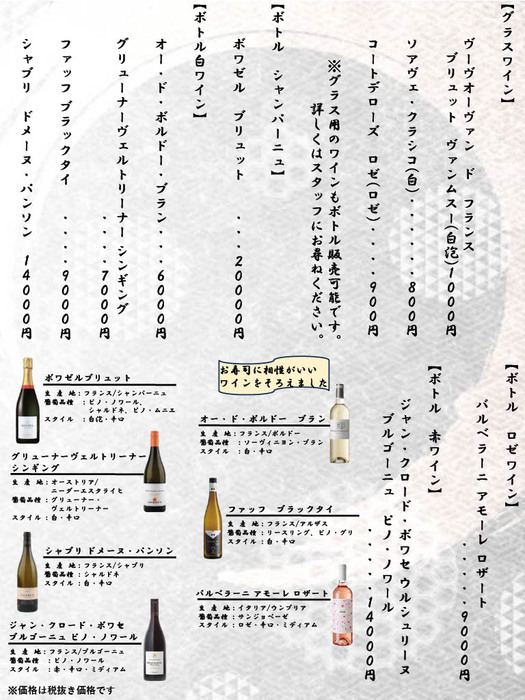 【グラスワイン】
ヴーヴオーヴァン ド フランス
ブリュット ヴァンムスー(白泡)1000円
ソアヴェ・クラシコ(白)・・・・・・800円
コートデローズ ロゼ(ロゼ)・・・・900円
※グラス用のワインもボトル販売可能です。
詳しくはスタッフにお尋ねください。
【ボトル シャンパーニュ】
ボワゼル ブリュット ・・・20000円
【ボトル白ワイン】
オー・ド・ボルドー・ブラン・・・6000円
グリューナーヴェルトリーナー シンギング
・・・・7000円
ファッフ ブラックタイ ・・・・9000円
シャブリ ドメーヌ・パンソン 14000円
【ボトル ロゼワイン】
バルベラーニ アモーレ ロザート
・・・・・・・9000円
【ボトル 赤ワイン】
ジャン・クロード・ボワセ ウルシュリーヌ
ブルゴーニュ ピノ・ノワール
・・・・・14000円
お寿司に相性がいい
ワインをそろえました
ボワゼルブリュット
生 産 地：フランス/シャンパーニュ
葡萄品種：ピノ・ノワール、
シャルドネ、ピノ・ムニエ
スタイル ：白泡・辛口
オー・ド・ボルドー ブラン
生 産 地：フランス/ボルドー
葡萄品種：ソーヴィニヨン・ブラン
スタイル ：白・辛口
グリューナーヴェルトリーナー
シンギング
生 産 地：オーストリア/
ニーダーエスタライヒ
葡萄品種：グリューナー・
ヴェルトリーナー
スタイル：白・辛口
ファッフ ブラックタイ
生 産 地：フランス/アルザス
葡萄品種：リースリング、ピノ・グリ
スタイル ：白・辛口
シャブリ ドメーヌ・パンソン
生 産 地：フランス/シャブリ
葡萄品種：シャルドネ
スタイル ：白・辛口
バルベラーニ アモーレ ロザート
生 産 地：イタリア/ウンブリア
葡萄品種：サンジョベーゼ
スタイル：ロゼ・辛口・ミディアム
ジャン・クロード・ボワセ
ブルゴーニュ ピノ・ノワール
生 産 地：フランス/ブルゴーニュ
葡萄品種：ピノ・ノワール
スタイル ：赤・辛口・ミディアム
※価格は税抜き価格です